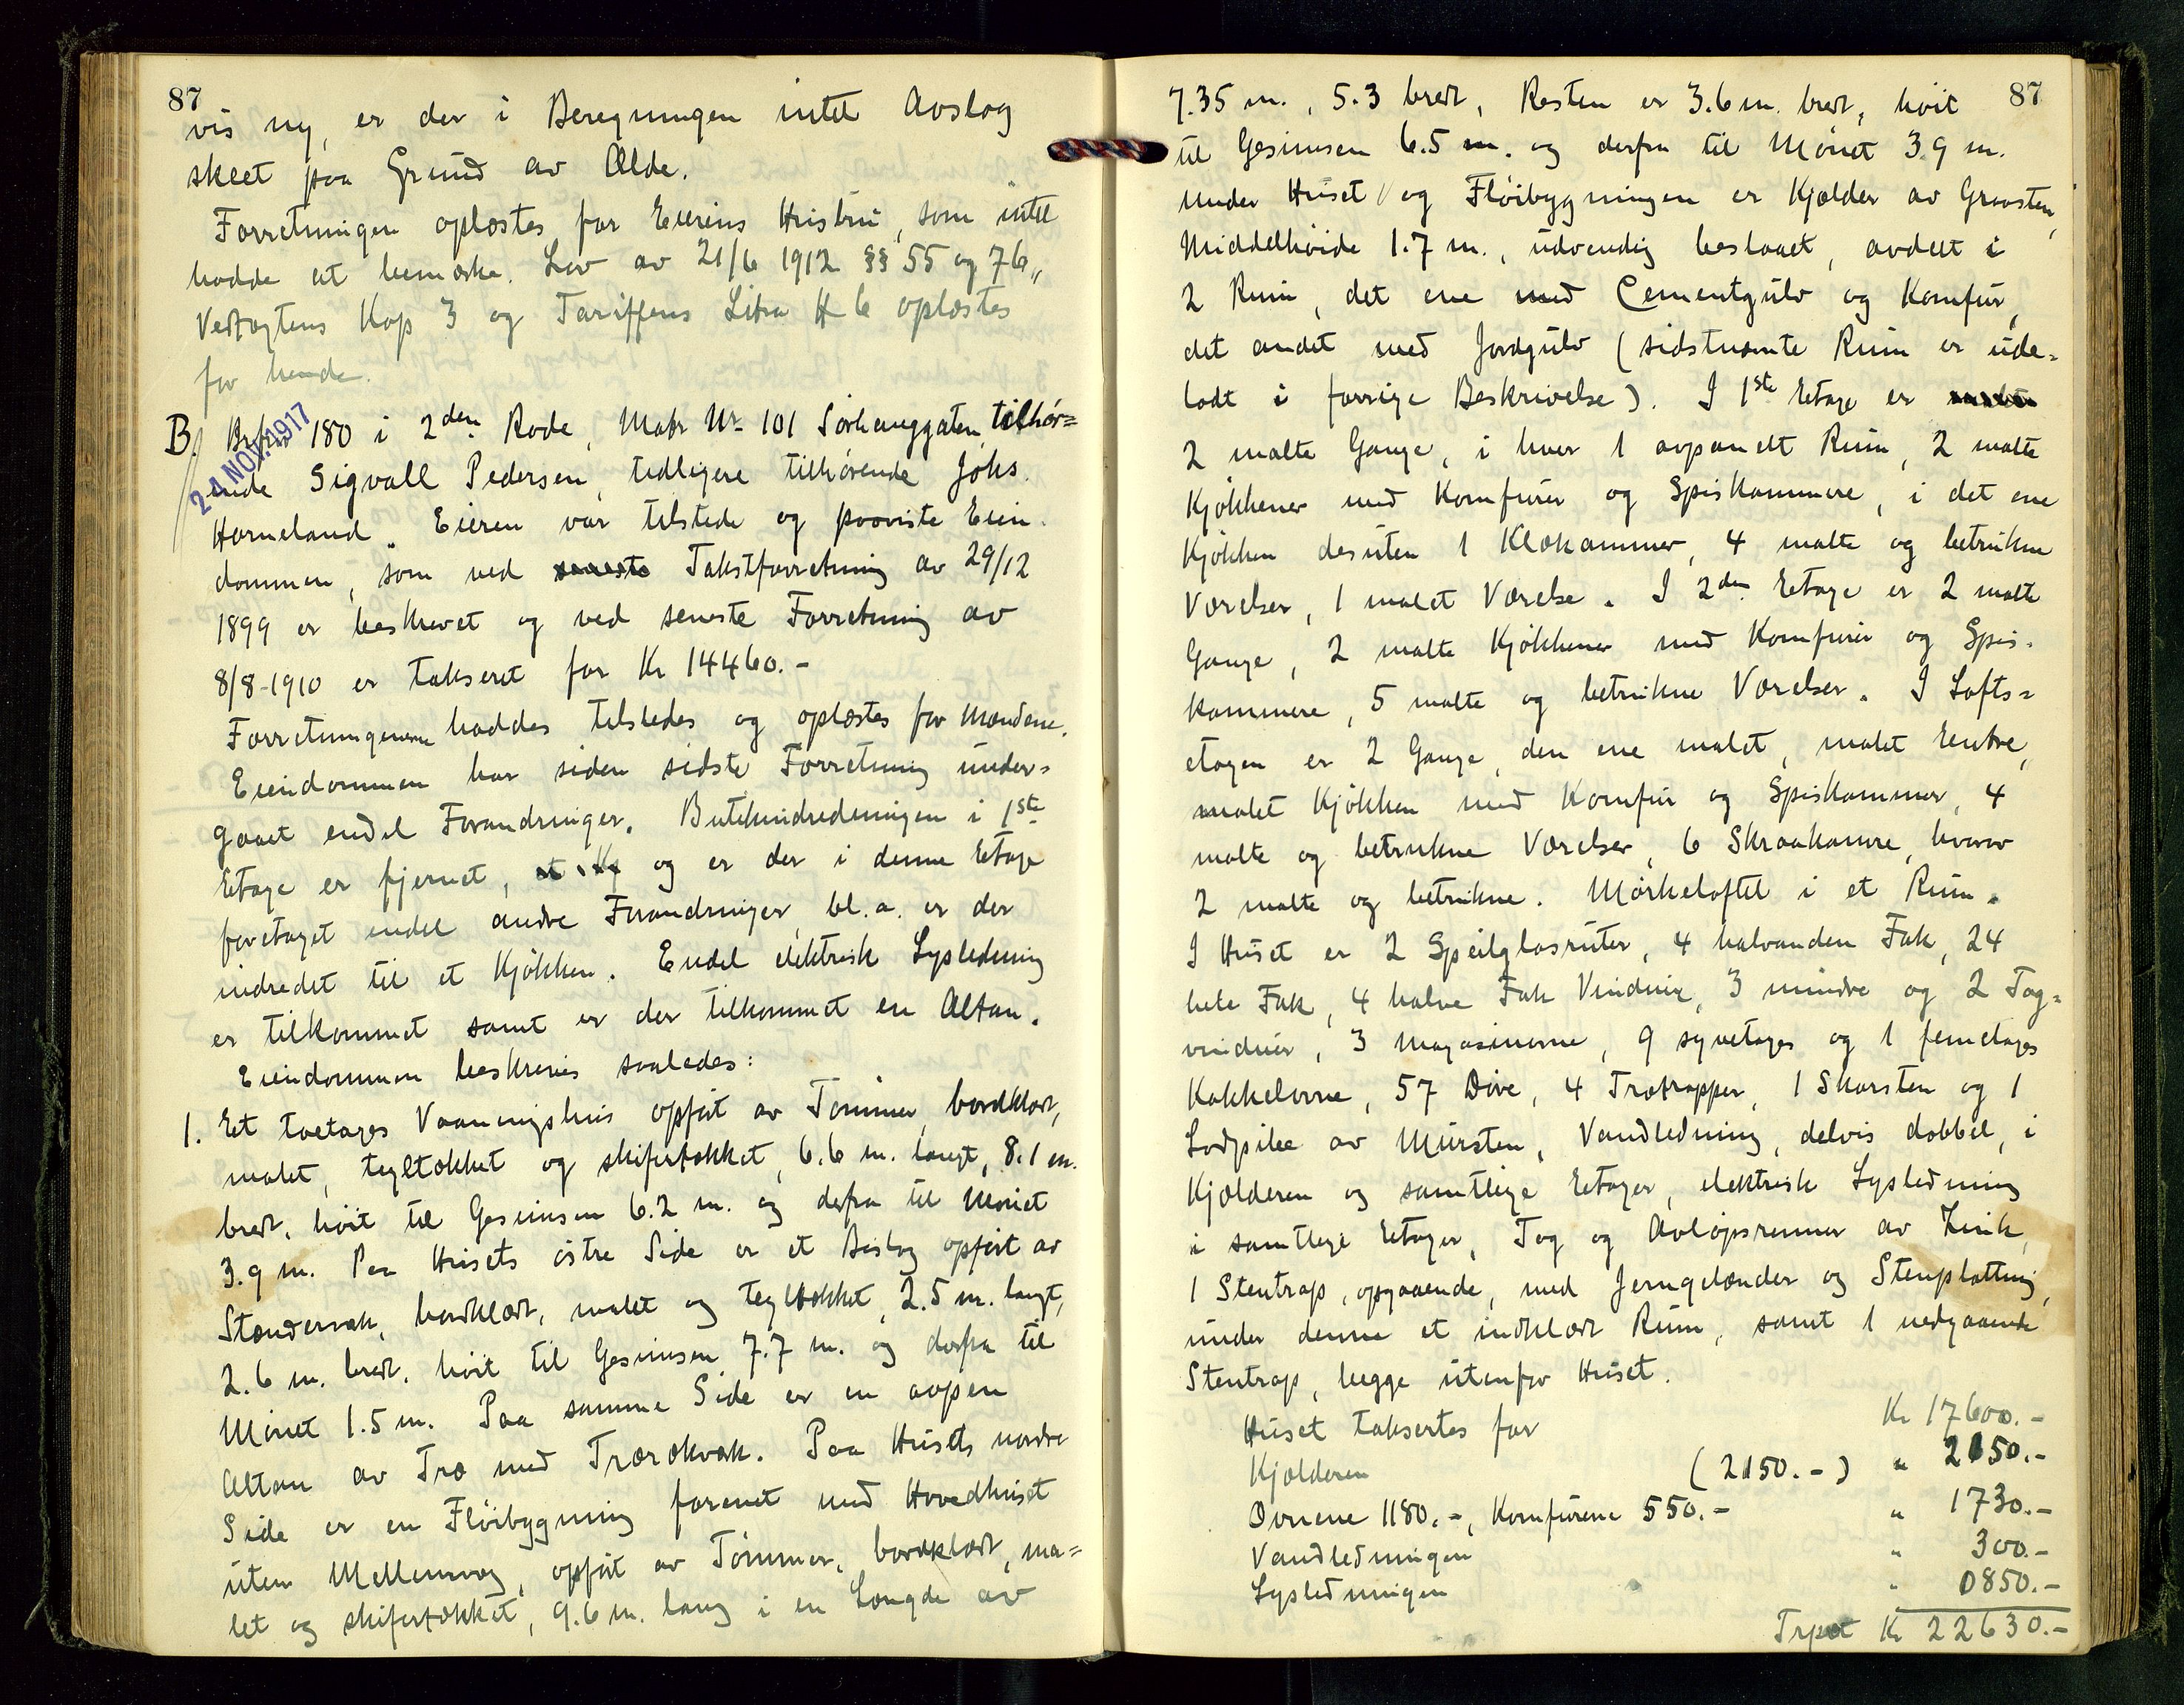 87
vis ny, er der i Beregningen intet Avslag
skeet paa Grund av Ælde.
Forretningen oplæstes for Eierens Hustru, som intet
hadde at bemærke. Lov av 21/6 1912 §§ 55 og 76,,
Vedtægtens Kap 3 og Tariffens Litra H 6 oplæstes
for hende.
B. 180 i 2den Rode, Matr Nr 101 Sørhauggaten, tilhør=
24 NOV. 1917
ende Sigvall Pedersen, tidligere tilhørende Johs.
Horneland. Eieren var tilstede og paaviste Eien-
dommen, som ved seneste Takstforretning av 29/12
1899 er beskrevet og ved seneste Forretning av
8/8-1910 er takseret for Kr 14460.-
Forretningerne haddes tilstedes og oplæstes for Mændene.
Eiendommen har siden sidste Forretning under=
gaaet endel Forandringer. Butikindredningen i 1ste
Etage er fjernet, og er der i denne Etage
foretaget endel andre Forandringer, bl.a. er der
indredet til et Kjøkken. Endel elektrisk Lysledning
er tilkommet samt er der tilkommet en Altan.
Eiendommen beskrives saaledes:
1. Et toetages Vaaningshus opført av Tømmer, bordklædt,
malet, tegltækket og skifertækket, 6.6 m. langt, 8.1 m.
bredt, høit til Gesimsen 6.2 m. og derfra til Mønet
3.9 m. Paa Husets østre Side er et Bislag opført av
Stænderværk, bordklædt, malet og tegltækket, 2.5 m. langt,
2.6 m. bredt, høit til Gesimsen 7.7 m. og derfra til
Mønet 1.5 m. Paa samme Side er en aapen
Altan av Træ med Trærækværk. Paa Husets nordre
Side er en Fløibygning forenet med Hovedhuset
uten Mellemvæg, opført av Tømmer, bordklædt, ma=
let og skifertækket, 9.6 m. lang i en Længde av
87
7.35 m., 5.3 bredt, Resten er 3.6 m. bredt, høit
til Gesimsen 6.5 m. og derfra til Mønet 3.9 m.
Under Huset og Fløibygningen er Kjælder av Graasten,
Middelhøide 1.7 m., udvendig beslaaet, avdelt i
2 Rum, det ene med Cementgulv og Komfur,
det andet med Jordgulv (sidstnævnte Rum er ude=
ladt i forrige Beskrivelse). I 1ste Etage er
2 malte Gange, i hver 1 avpanelt Rum, 2 malte
Kjøkkener med Komfurer og Spiskammere, i det ene
Kjøkken desuten 1 Klækammer, 4 malte og betrukne
Værelser, 1 malet Værelse. I 2den Etage er 2 malte
Gange, 2 malte Kjøkkener med Komfurer og Spis-
kammere, 5 malte og betrukne Værelser. I Lofts=
etagen er 2 Gange, den ene malet, malet Entre,
malet Kjøkken med Komfur og Spiskammer, 4
malte og betrukne Værelser, 6 Skraakamre, hvorav
2 malte og betrukne. Mørkeloftet i et Rum.
I Huset er 2 Speilglasruter, 4 halvanden Fak, 24
hele Fak, 4 halve Fak Vinduer, 3 mindre og 2 Tag=
vinduer, 3 Magasinovne, 9 syvetages og 1 femetages
Kakkelovne, 57 Døre, 4 Trætrapper, 1 Skorsten og 1
Lodpibe av Mursten, Vandledning, delvis dobbel, i
Kjælderen og samtlige Etager, elektrisk Lysledning
i samtlige Etager, Tag og Avløpsrenner av Zink,
1 Stentrap, opgaaende, med Jerngelænder og Stenplatting,
under denne et indklædt Rum, samt 1 nedgaaende
Stentrap, begge utenfor Huset.
Huset takseres for Kr 17600.-
Kjælderen (2150.-) " 2150.-
Ovnene 1180.-, Komfurene 550.- " 1730.-
Vandledningen " 300.-
Lysledningen " 0850.-
Kr 22630.-